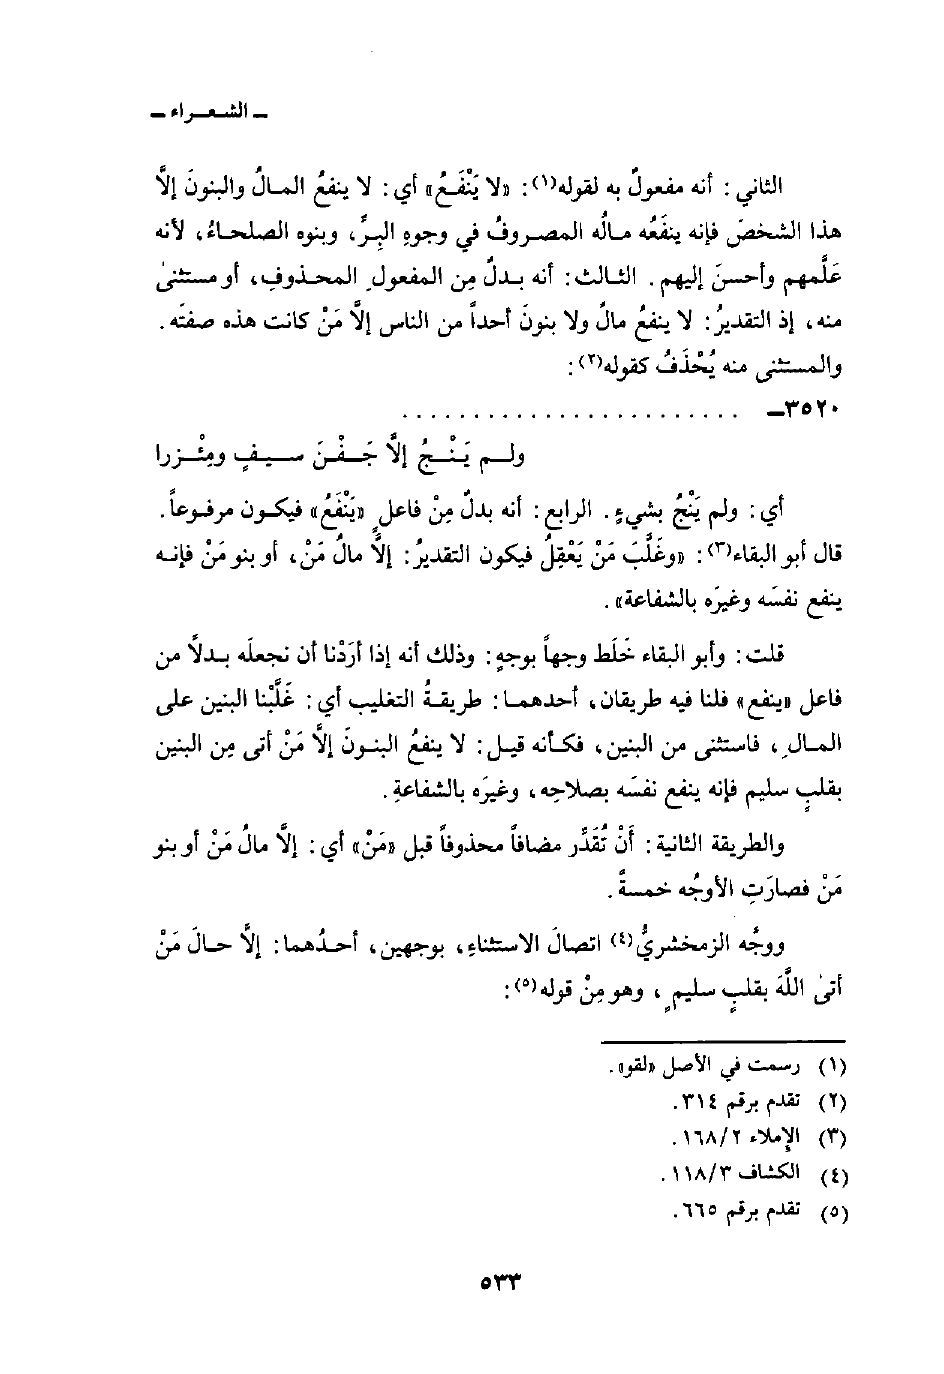 ـ الشعراء ـ
الثاني: أنه مفعولٌ به لقوله(١): «لا يَنْفَعُ» أي: لا ينفعُ المالُ والبنونَ إلَّا
هذا الشخصَ فإنه ينفَعُه مالُه المصروفُ في وجوهِ البِرِّ، وبنوه الصلحاءُ، لأنه
عَلَّمهم وأحسنَ إليهم. الثالث: أنه بدلٌ مِن المفعولِ المحذوفِ، أو مستثنىٰ
منه، إذ التقديرُ: لا ينفعُ مالٌ ولا بنونَ أحداً من الناس إلَّا مَنْ كانت هذه صفتَه.
والمستثنى منه يُحْذَفُ كقوله(٢):
٣٥٢٠ـ . . . . . . . . . . . . . . . . . . . . . . . .
ولم يَنْجُ إلَّا جَفْنَ سيفٍ ومِئْزرا
أي: ولم يَنْجُ بشيءٍ. الرابع: أنه بدلٌ مِنْ فاعلِ «يَنْفَعُ» فيكون مرفوعاً.
قال أبو البقاء(٣): «وغَلَّبَ مَنْ يَعْقِلُ فيكون التقديرُ: إلَّا مالُ مَنْ، أو بنو مَنْ فإنه
ينفع نفسَه وغيرَه بالشفاعة».
قلت: وأبو البقاء خَلَط وجهاً بوجهٍ: وذلك أنه إذا أرَدْنا أن نجعلَه بدلاً من
فاعل «ينفع» فلنا فيه طريقان، أحدهما: طريقةُ التغليب أي: غَلَّبْنا البنين على
المالِ، فاستثنى من البنين، فكأنه قيل: لا ينفعُ البنونَ إلَّا مَنْ أتى مِن البنين
بقلبٍ سليمٍ فإنه ينفع نفسَه بصلاحِه، وغيرَه بالشفاعةِ.
والطريقة الثانية: أَنْ تُقَدِّر مضافاً محذوفاً قبل «مَنْ» أي: إلَّا مالُ مَنْ أو بنو
مَنْ فصارَتِ الأوجُه خمسةً.
ووجَّه الزمخشريُّ(٤) اتصالَ الاستثناءِ، بوجهين، أحدُهما: إلَّا حالَ مَنْ
أتىٰ اللَّهَ بقلبٍ سليمٍ، وهو مِنْ قوله(٥):
(١) رسمت في الأصل «لقو».
(٢) تقدم برقم ٣١٤.
(٣) الإملاء ١٦٨/٢.
(٤) الكشاف ١١٨/٣.
(٥) تقدم برقم ٦٦٥.
٥٣٣